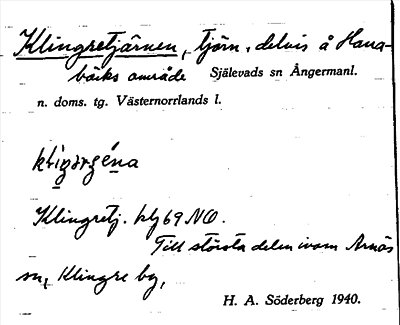 Klingretjärnen, tjärn, delvis å Hana-
bäcks område Själevads sn Ångermanl.
n. doms. tg. Västernorrlands l.
Klingretj. blg 69 NO.
Till största delen inom Arnäs
sn, Klingre by,
H. A. Söderberg 1940.